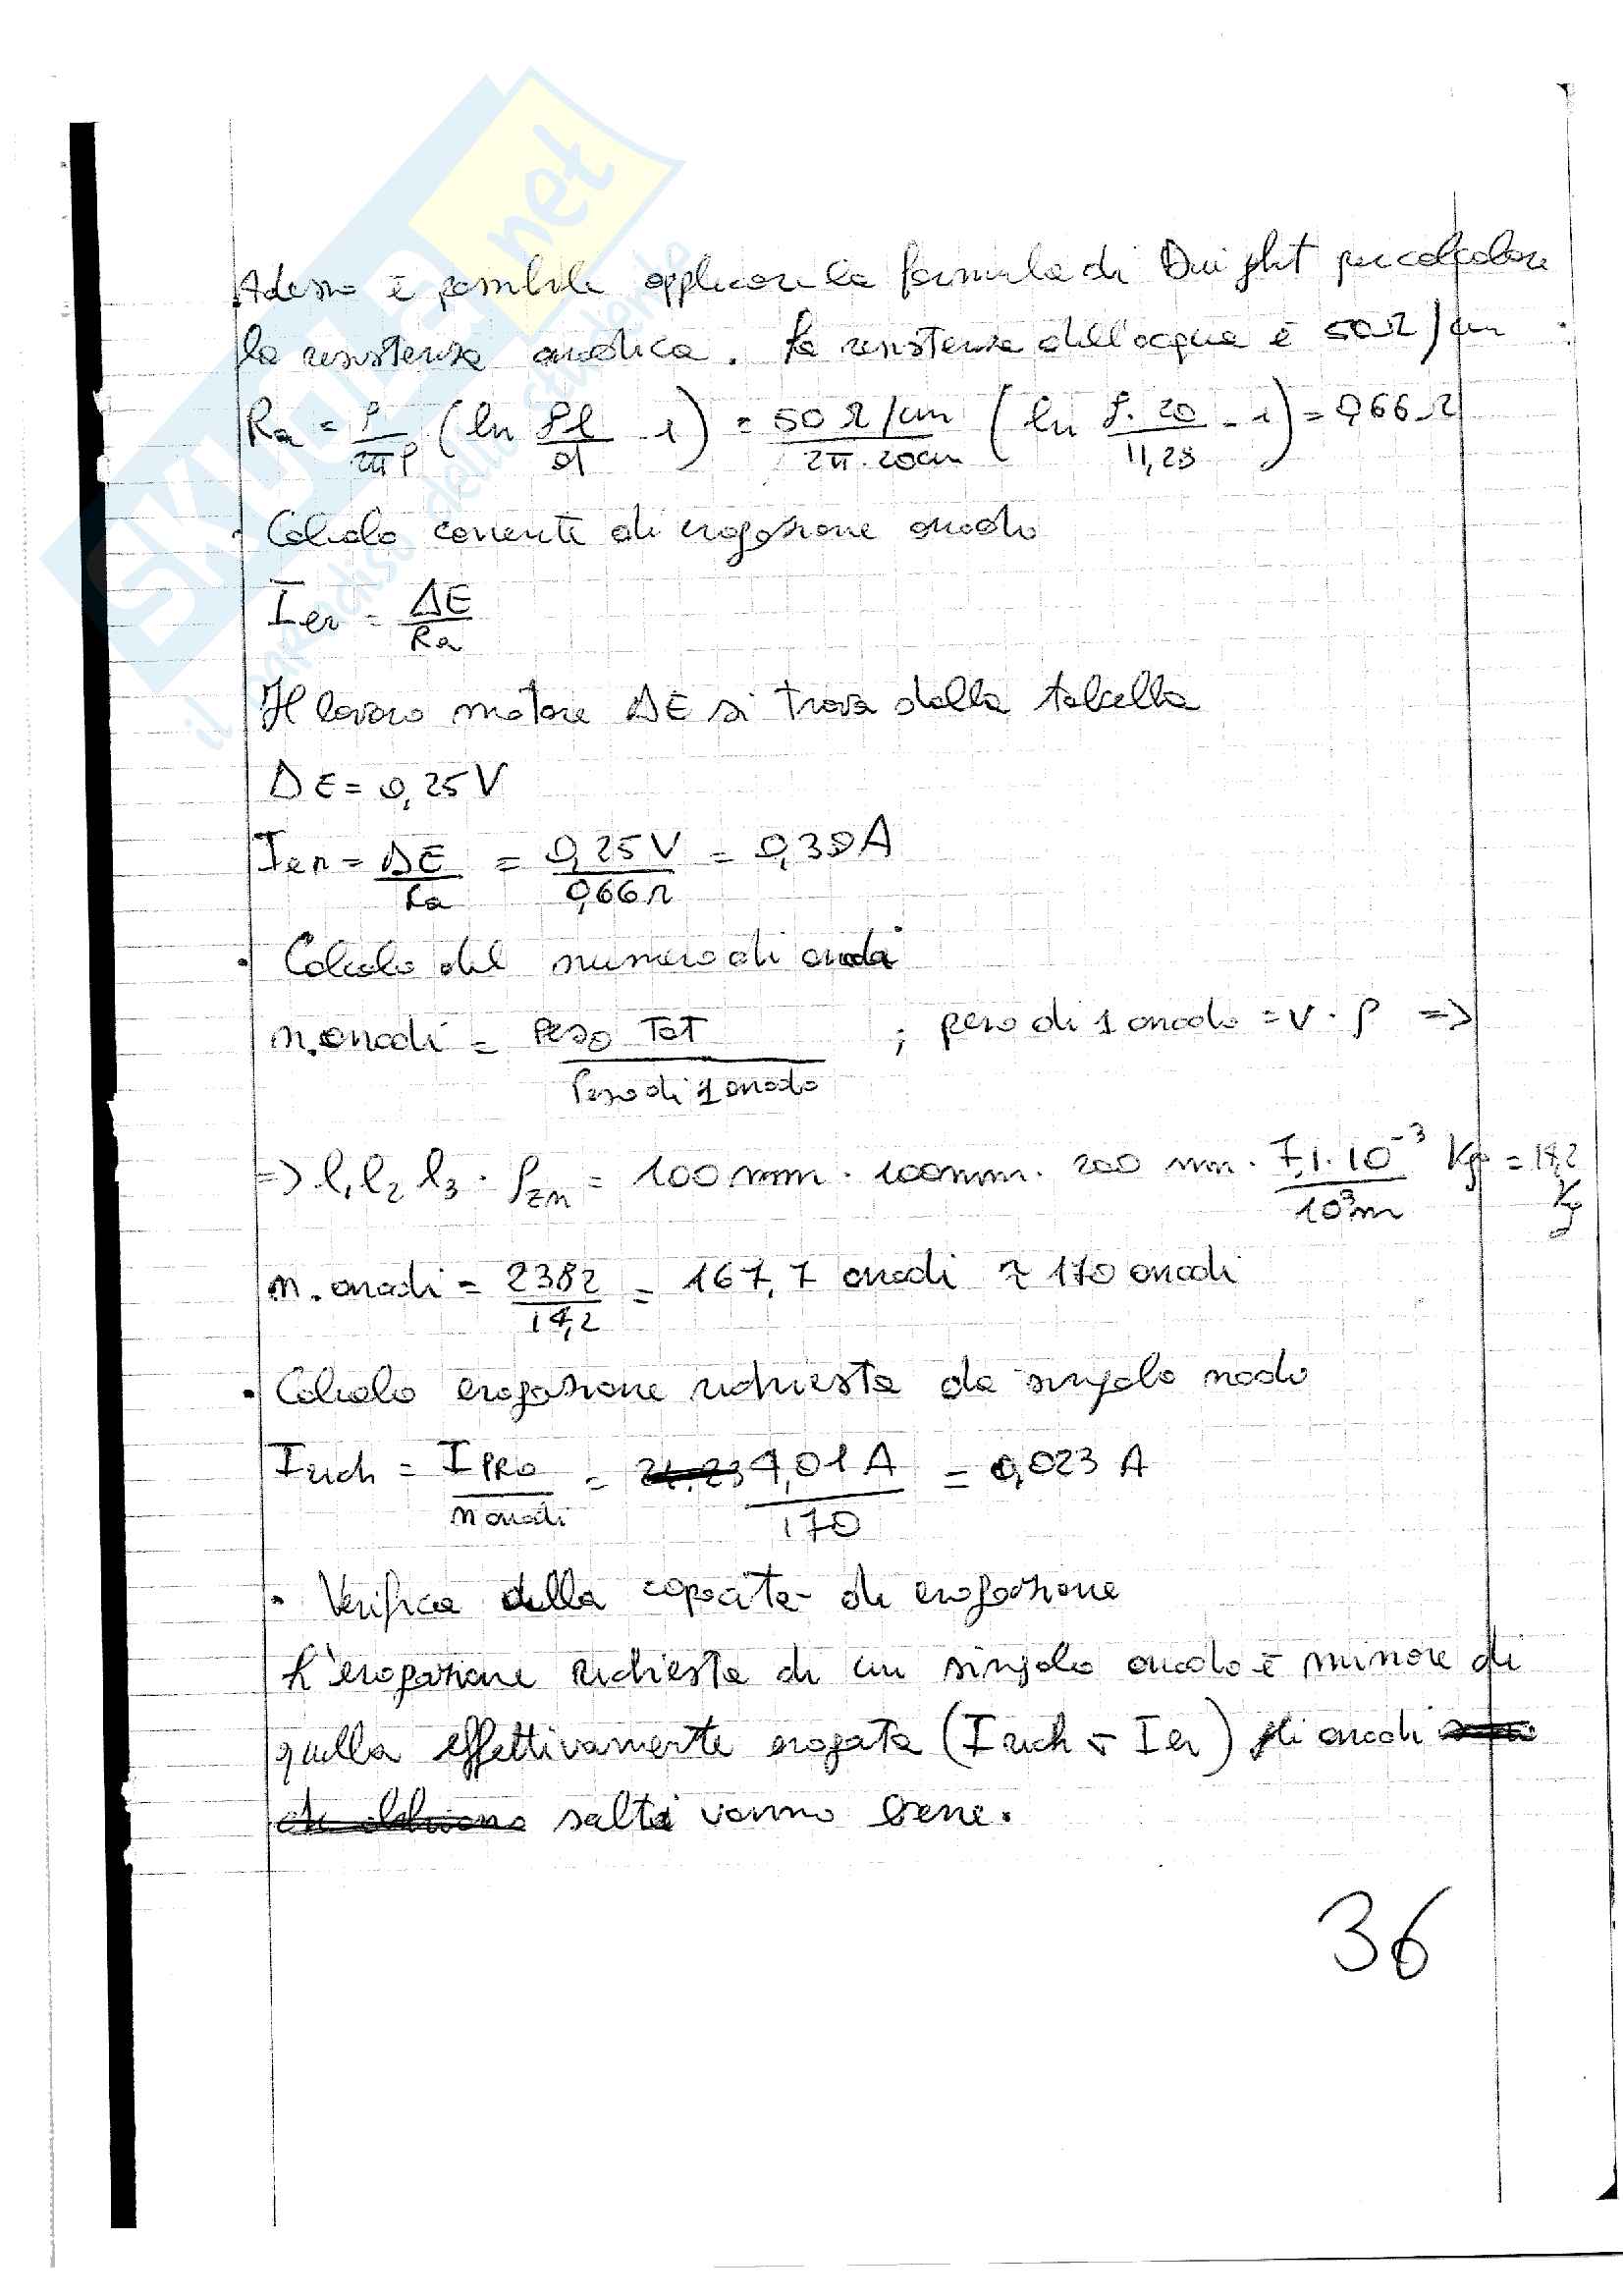 SKUOLA.net
il paradiso dello studente
Adesso è possibile applicare la formula di Dwight per calcolare
la resistenza anodica. La resistenza dell'acqua è 50 Ω/cm
Ra = ρ/2πl (ln 8l/d - 1) = 50 Ω/cm / 2π·20cm (ln 8·20/11,28 - 1) = 0,66 Ω
· Calcolo corrente di erogazione anodo
Ier = ΔE/Ra
Il lavoro motore ΔE si trova dalla tabella
ΔE = 0,25 V
Ier = ΔE/Ra = 0,25V/0,66Ω = 0,38A
· Calcolo del numero di anodi
n. anodi = Peso Tot / Peso di 1 anodo ; peso di 1 anodo = V · ρ =>
=> l1 l2 l3 · ρzn = 100 mm · 100 mm · 200 mm · 7,1·10⁻³ Kg / 10³m = 14,2 Kg
n. anodi = 2382/14,2 = 167,7 anodi ≈ 170 anodi
· Calcolo erogazione richiesta da singolo nodo
Irich = IPRO / n anodi = 4,01 A / 170 = 0,023 A
· Verifica della capacità di erogazione
L'erogazione richiesta di un singolo anodo è minore di
quella effettivamente erogata (Irich < Ier) gli anodi
salti vanno bene.
36